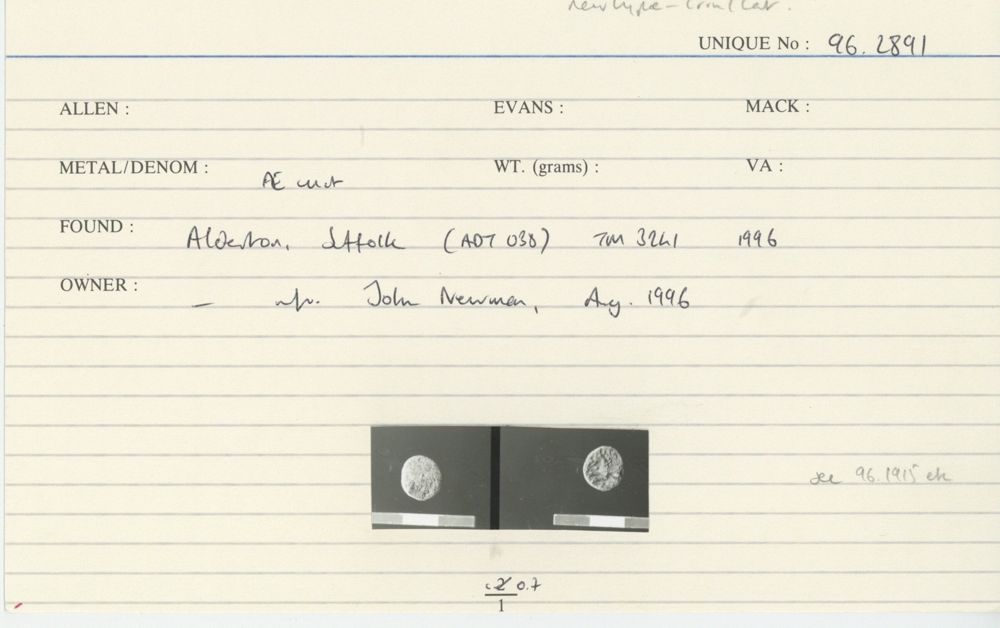 UNIQUE No : 96.2891
ALLEN : EVANS : MACK :
METAL/DENOM : Æ unit WT. (grams) : VA :
FOUND : Alderton, Suffolk (ADT 038) TM 3241 1996
OWNER : — John Newman, Aug. 1996
see 96.1915 etc
0.7
1